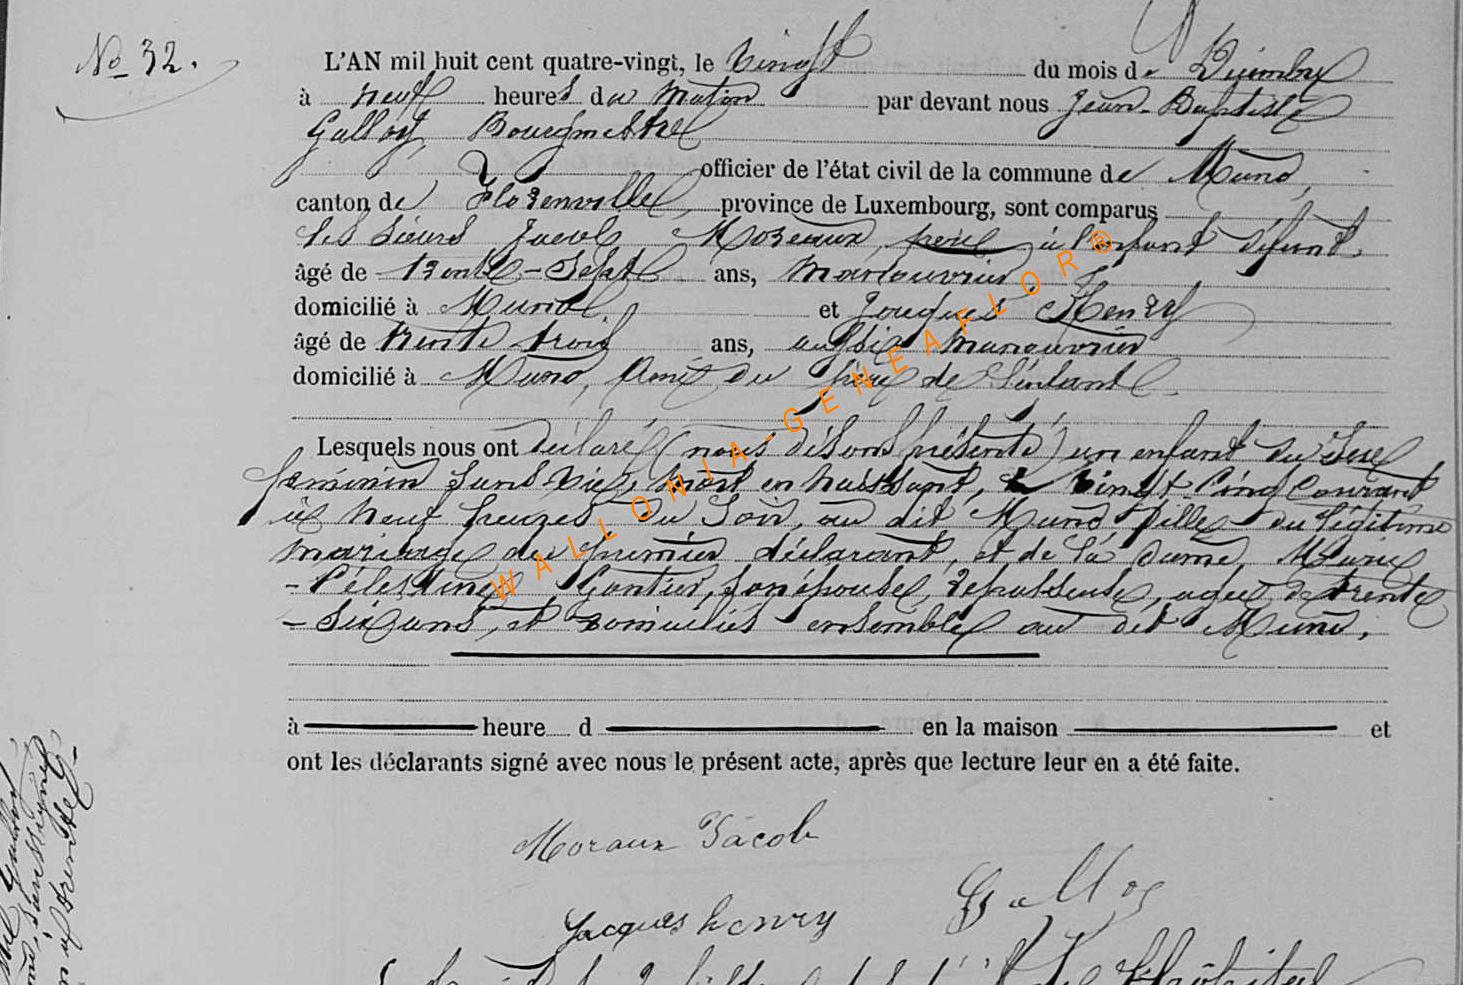 No 32.
L'AN mil huit cent quatre-vingt, le Vingt du mois de Décembre
à neuf heures du matin par devant nous Jean-Baptiste
Galloy Bourgmestre
officier de l'état civil de la commune de Muno,
canton de Florenville, province de Luxembourg, sont comparus
les sieurs Jacob Moreaux, père à l'enfant défunt,
âgé de trente-sept ans, manouvrier
domicilié à Muno, et Jacques Henry
âgé de trente trois ans, aussi manouvrier
domicilié à Muno, ami du père de l'enfant.
Lesquels nous ont déclaré (nous disons présenté) un enfant du sexe
féminin sans vie, mort en naissant, le vingt-cinq courant
à neuf heures du soir, au dit Muno fille du légitime
mariage du premier déclarant, et de la dame, Marie
-Célestine Gontier, son épouse, repasseuse, agée de trente
-six ans, et domiciliés ensemble au dit Muno.
à heure d en la maison et
ont les déclarants signé avec nous le présent acte, après que lecture leur en a été faite.
Moraux Jacob
Galloy
Jacques henry
WALLONIA-GENEAFLOR®